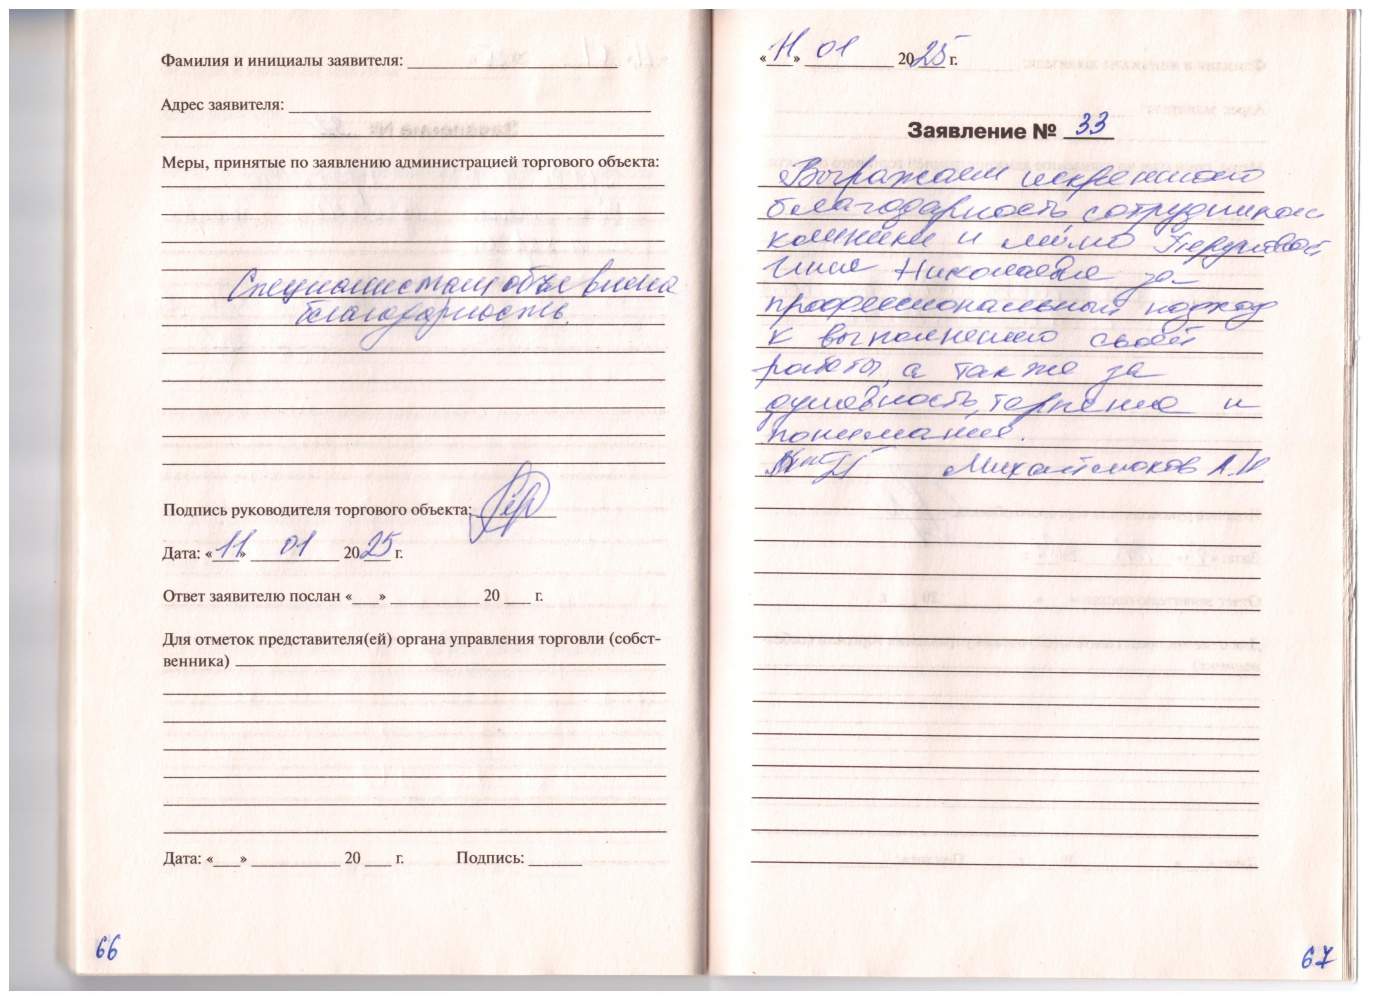 Фамилия и инициалы заявителя:
Адрес заявителя:
Меры, принятые по заявлению администрацией торгового объекта:
Специалистам объявлена
благодарность.
Подпись руководителя торгового объекта:
Дата: «11» 01 2025 г.
Ответ заявителю послан «___» 20 ___ г.
Для отметок представителя(ей) органа управления торговли (собст-
венника)
Дата: «___» 20 ___ г. Подпись:
66
«11» 01 2025 г.
Заявление № 33
Выражаем искреннюю
благодарность сотрудникам
клиники и лично
Инне Николаевне за
профессиональный подход
к выполнению своей
работы, а также за
душевность, терпение и
понимание.
67